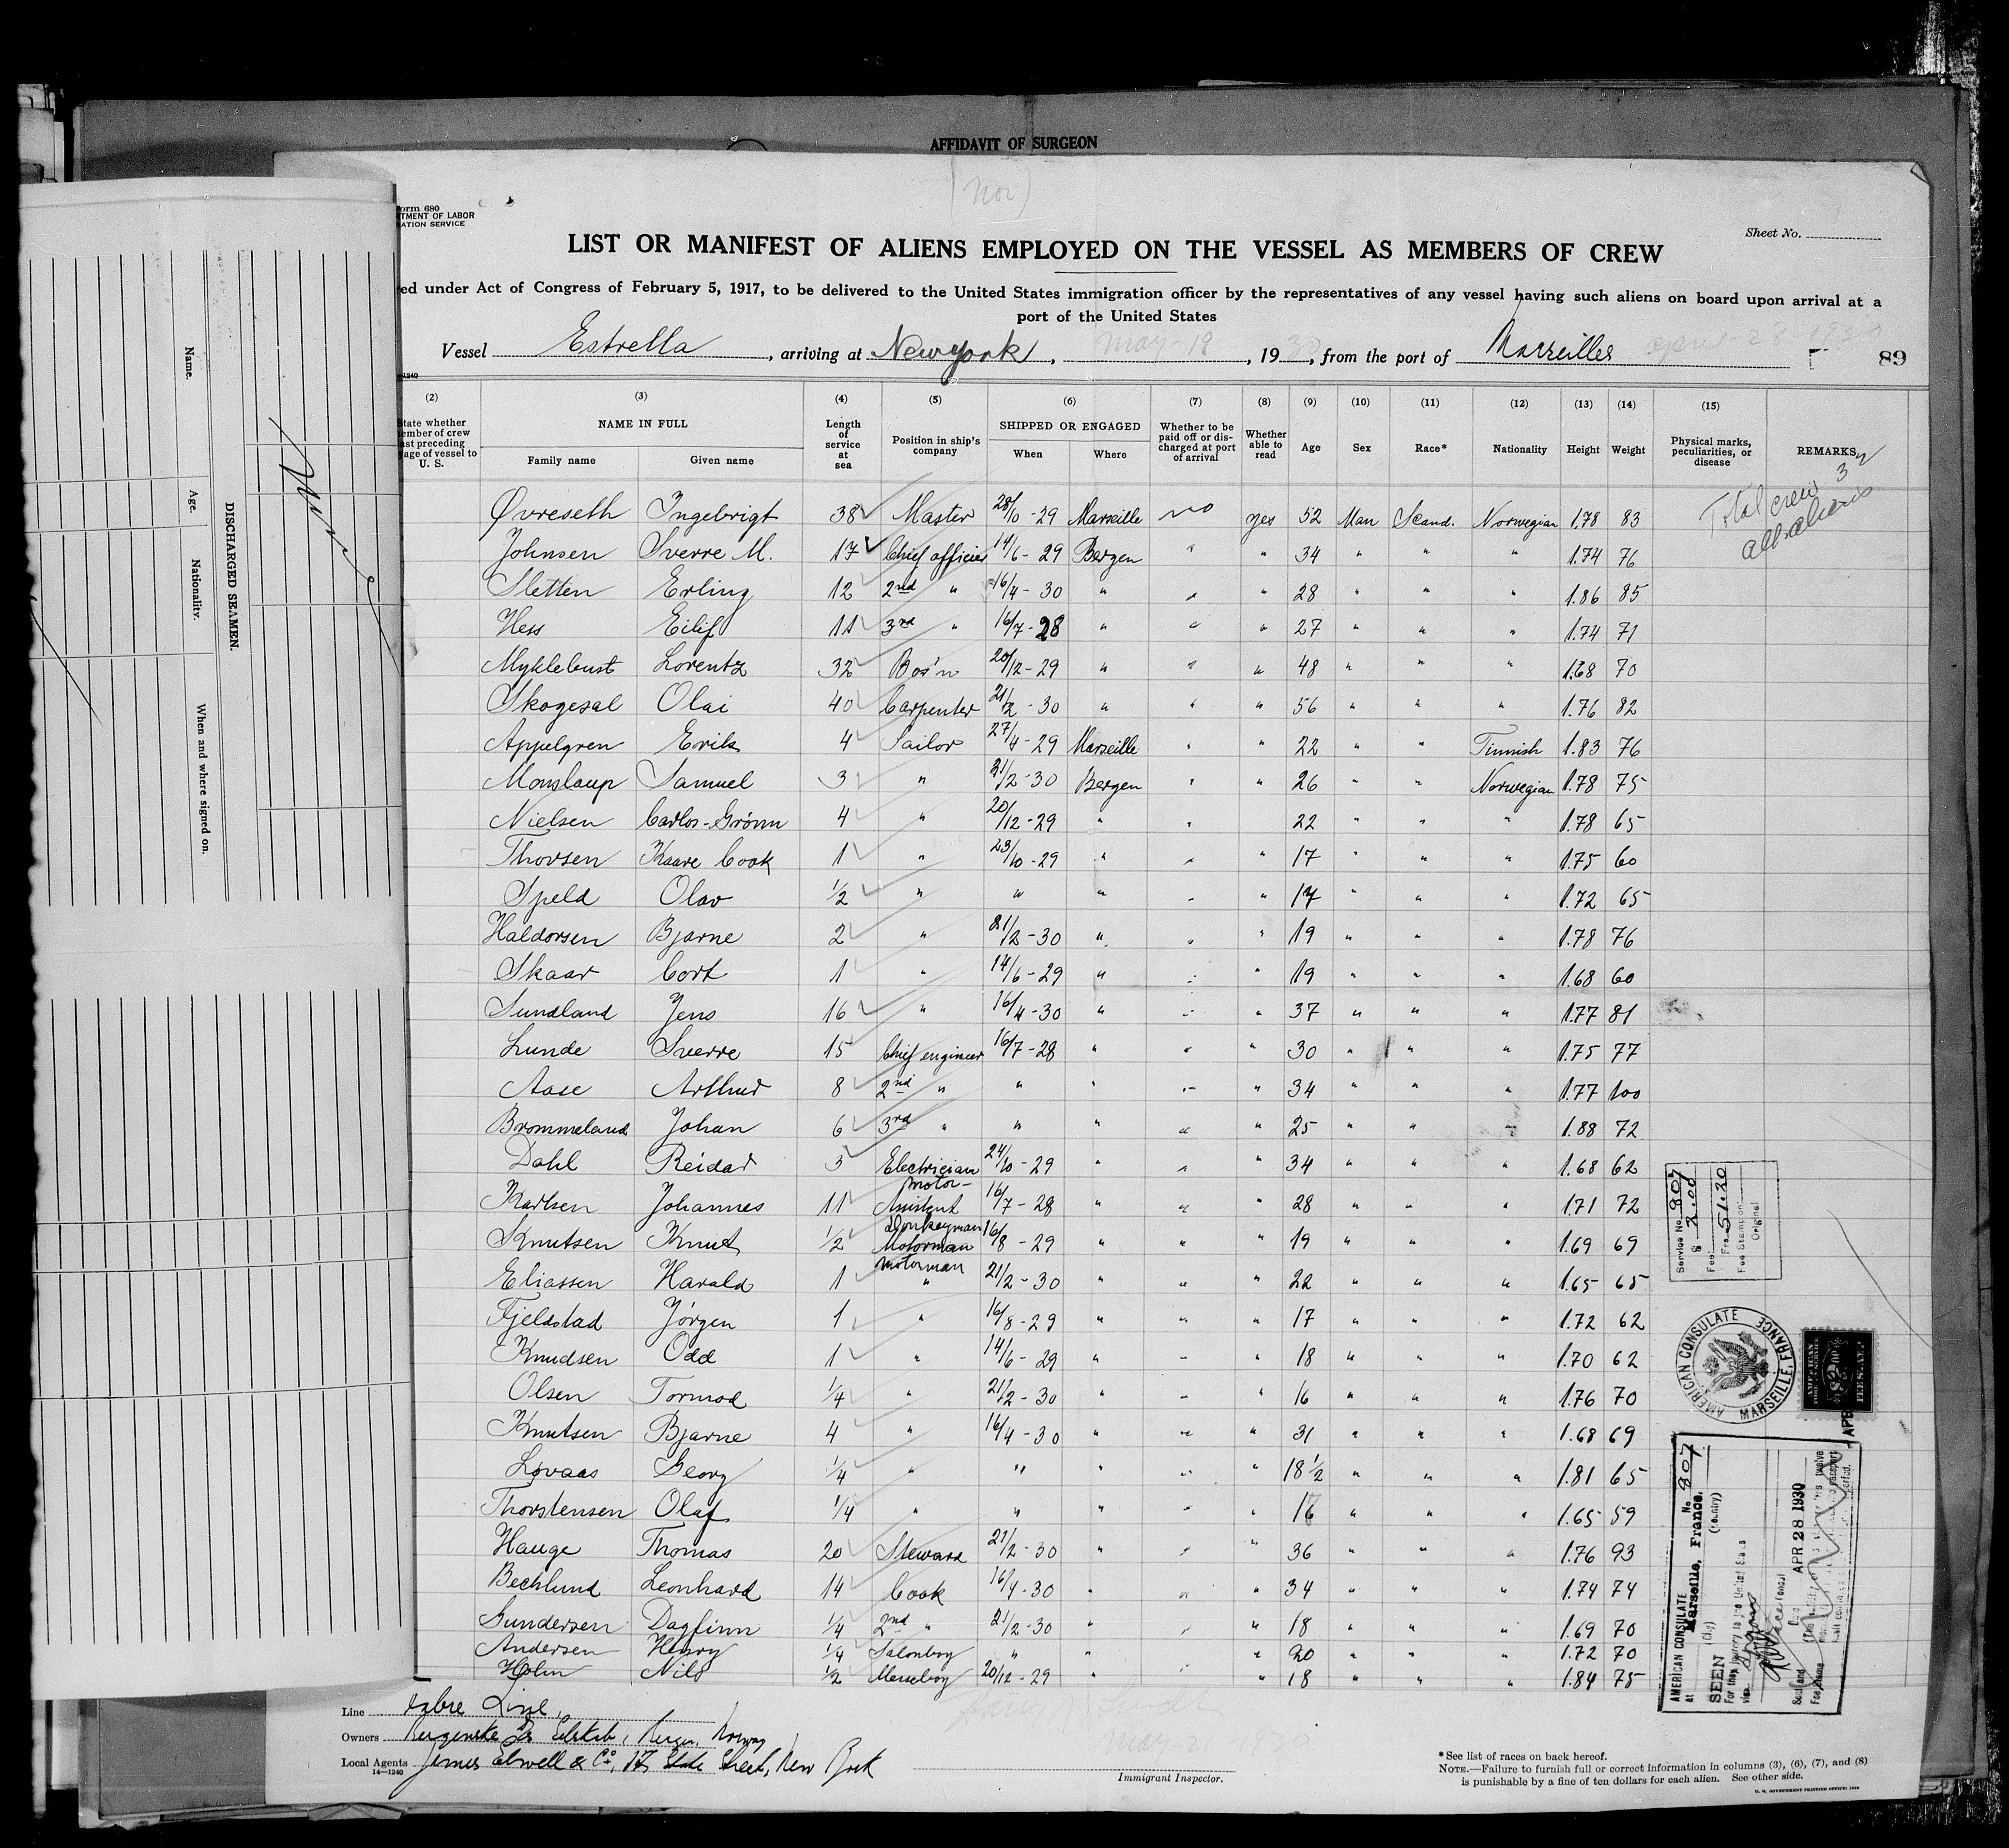 AFFIDAVIT OF SURGEON
(Nor)
orm 680
TMENT OF LABOR
ATION SERVICE
Sheet No.
LIST OR MANIFEST OF ALIENS EMPLOYED ON THE VESSEL AS MEMBERS OF CREW
ed under Act of Congress of February 5, 1917, to be delivered to the United States immigration officer by the representatives of any vessel having such aliens on board upon arrival at a
port of the United States
Vessel Estrella, arriving at New York, May-18, 1930, from the port of Marseilles april-28-1930
89
(2) State whether ember of crew ast preceding age of vessel to U. S.
(3) NAME IN FULL Family name Given name
(4) Length of service at sea
(5) Position in ship's company
(6) SHIPPED OR ENGAGED When Where
(7) Whether to be paid off or discharged at port of arrival
(8) Whether able to read
(9) Age
(10) Sex
(11) Race*
(12) Nationality
(13) Height
(14) Weight
(15) Physical marks, peculiarities, or disease
REMARKS
Total crew 32
all aliens
Øvreseth Ingebrigt 38 Master 28/10-29 Marseille no yes 52 Man Scand. Norwegian 1.78 83
Johnsen Sverre M. 17 Chief officier 14/6-29 Bergen " " 34 " " " 1.74 76
Sletten Erling 12 2nd " 16/4-30 " " " 28 " " " 1.86 85
Hess Eilif 11 3rd " 16/7-28 " " " 27 " " " 1.74 71
Myklebust Lorentz 32 Bos'n 20/12-29 " " " 48 " " " 1.68 70
Skogesal Olai 40 Carpenter 21/2-30 " " " 56 " " " 1.76 82
Appelgren Erik 4 Sailor 27/4-29 Marseille " " 22 " " Finnish 1.83 76
Monslaup Samuel 3 " 21/2-30 Bergen " " 26 " " Norwegian 1.78 75
Nielsen Carlos-Grönn 4 " 20/12-29 " " 22 " " " 1.78 65
Thorsen Kaare Cook 1 " 23/10-29 " " " 17 " " " 1.75 60
Speld Olav 1/2 " " " " " 17 " " " 1.72 65
Haldorsen Bjarne 2 " 21/2-30 " " " 19 " " " 1.78 76
Skaar Cort 1 " 14/6-29 " " " 19 " " " 1.68 60
Sundland Jens 16 " 16/4-30 " " " 37 " " " 1.77 81
Lunde Sverre 15 Chief engineer 16/7-28 " " " 30 " " " 1.75 77
Aase Arthur 8 2nd " " " " " 34 " " " 1.77 100
Brommeland Johan 6 3rd " " " " " 25 " " " 1.88 72
Dahl Reidar 3 Electrician 24/10-29 " " " 34 " " " 1.68 62
Karlsen Johannes 11 motor-Assistent 16/7-28 " " " 28 " " " 1.71 72
Knutsen Knut 1/2 Donkeyman Motorman 16/8-29 " " " 19 " " " 1.69 69
Eliassen Harald 1 motorman " 21/2-30 " " " 22 " " " 1.65 65
Fjeldstad Jörgen 1 " 16/8-29 " " " 17 " " " 1.72 62
Knudsen Odd 1 " 14/6-29 " " " 18 " " " 1.70 62
Olsen Tormod 1/4 " 21/2-30 " " " 16 " " " 1.76 70
Knutsen Bjarne 4 " 16/4-30 " " " 31 " " " 1.68 69
Lövaas Georg 1/4 " " " " " 18 1/2 " " " 1.81 65
Thorstensen Olaf 1/4 " " " " " 16 " " " 1.65 59
Hauge Thomas 20 Steward 21/2-30 " " " 36 " " " 1.76 93
Bechlund Leonhard 14 Cook 16/4-30 " " " 34 " " " 1.74 74
Gundersen Dagfinn 1/4 2nd " 21/2-30 " " " 18 " " " 1.69 70
Andersen Henry 1/4 Salonboy " " " 20 " " " 1.72 70
Holm Nils 1/2 Messeboy 20/12-29 " " " 18 " " " 1.84 75
Line Fabre Line,
Owners Bergenske D/S Selskab, Bergen, Norway
Local Agents James Elwell & Co, 17, State Street, New York
14—1240
Immigrant Inspector.
*See list of races on back hereof.
NOTE.—Failure to furnish full or correct information in columns (3), (6), (7), and (8)
is punishable by a fine of ten dollars for each alien. See other side.
U. S. GOVERNMENT PRINTING OFFICE: 1929
DISCHARGED SEAMEN.
Name.
Age.
Nationality.
When and where signed on.
Service No. 807
Fee: $ 2.00
Frs. 51.20
Fee Stamp on Original
AMERICAN CONSULATE MARSEILLE, FRANCE.
AMERICAN $2.00 FEE STAMP
AMERICAN CONSULATE
at Marseille, France. No 807
(City) (Country)
SEEN
For the journey to the United States
APR 28 1930
Seal and
Fee Stamp